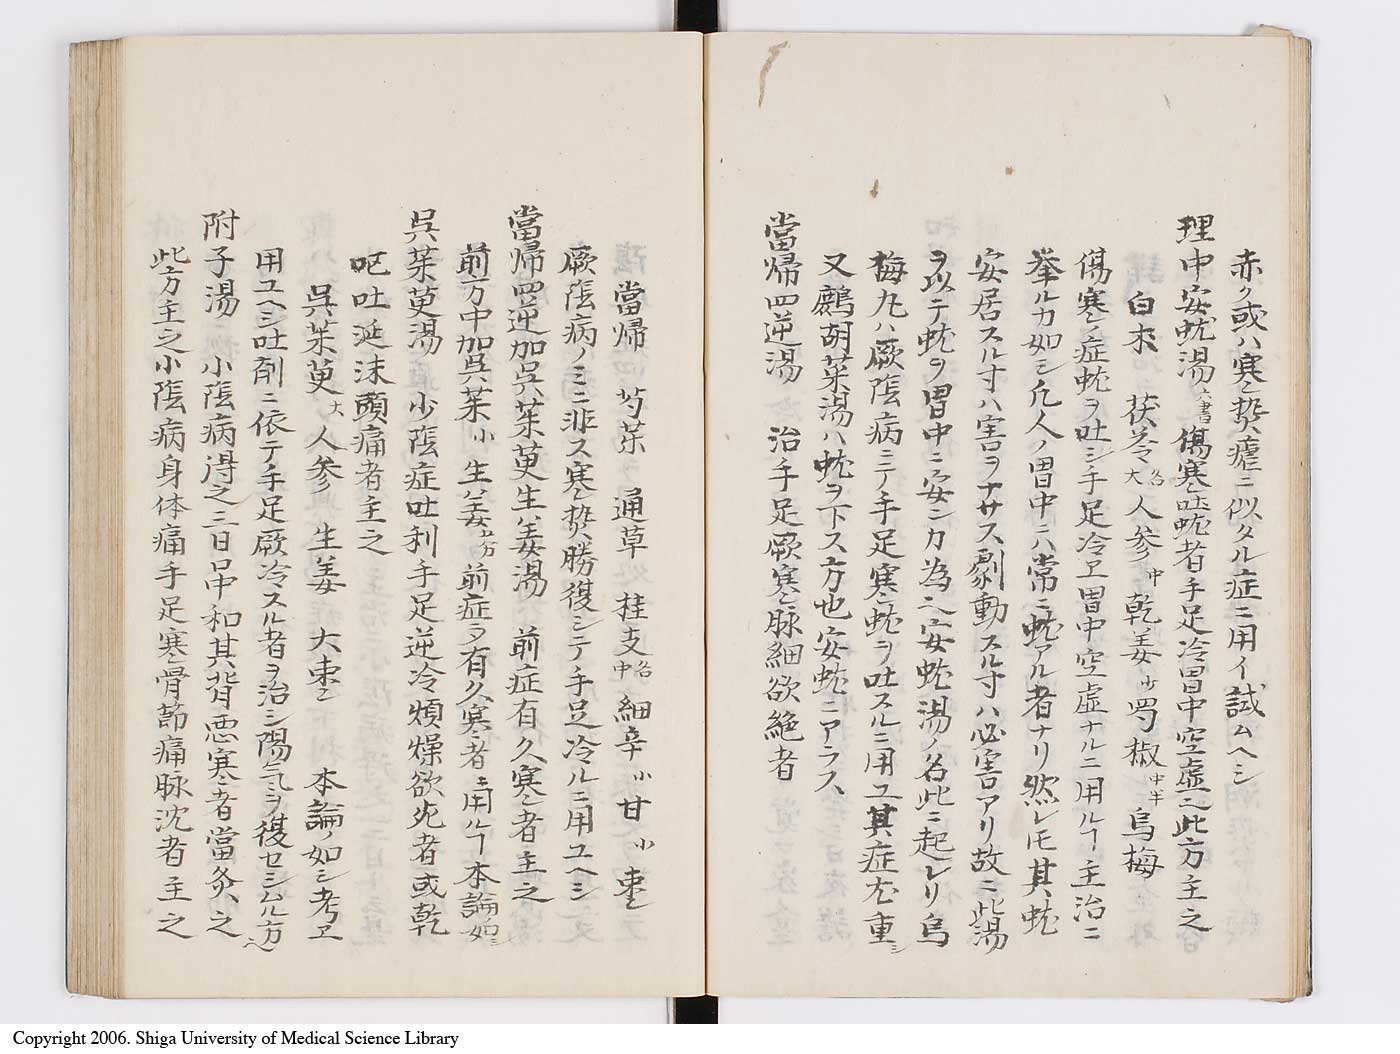 赤ク或ハ寒熱瘧ニ似タル症ニ用イ試ムヘシ
理中安蚘湯 六書 傷寒吐蚘者手足冷胃中空虚也此方主之
白朮 茯苓 各大 人参 中 乾姜 少 蜀椒 中半 烏梅
傷寒ノ症蚘ヲ吐シ手足冷ヱ胃中空虚ナルニ用ルヿ主治ニ
挙ルカ如シ凡人ノ胃中ニハ常ニ蚘アル者ナリ然レ𪜈其蚘
安居スル寸ハ害ヲナサス劇動スル寸ハ必害アリ故ニ此湯
ヲ以テ蚘ヲ胃中ニ安ンカ為也安蚘湯ノ名此ニ起レリ烏
梅丸ハ厥陰病ニテ手足寒蚘ヲ吐スルニ用ユ其症尤重シ
又鷓胡菜湯ハ蚘ヲ下ス方也安蚘ニアラス
當帰四逆湯 治手足厥寒脉細欲絶者
當帰 芍薬 通草 桂支 各中 細辛 小 甘 小 棗
厥陰病ノミニ非ス寒熱勝復シテ手足冷ルニ用ユヘシ
當帰四逆加呉茱萸生姜湯 前症有久寒者主之
前方中加呉茱 小 生姜 前症ニ有久寒者ニ用ルヿ本論如シ
呉茱萸湯 少陰症吐利手足逆冷煩燥欲死者或乾
呕吐涎沫頭痛者主之
呉茱萸 大 人参 生姜 大棗 本論ノ如シ考ヱ
用ユヘシ吐剤ニ依テ手足厥冷スル者ヲ治シ陽気ヲ復セシムル方也
附子湯 小陰病得之二三日口中和其背悪寒者當灸之
此方主之小陰病身体痛手足寒骨節痛脉沈者主之
Copyright 2006. Shiga University of Medical Science Library